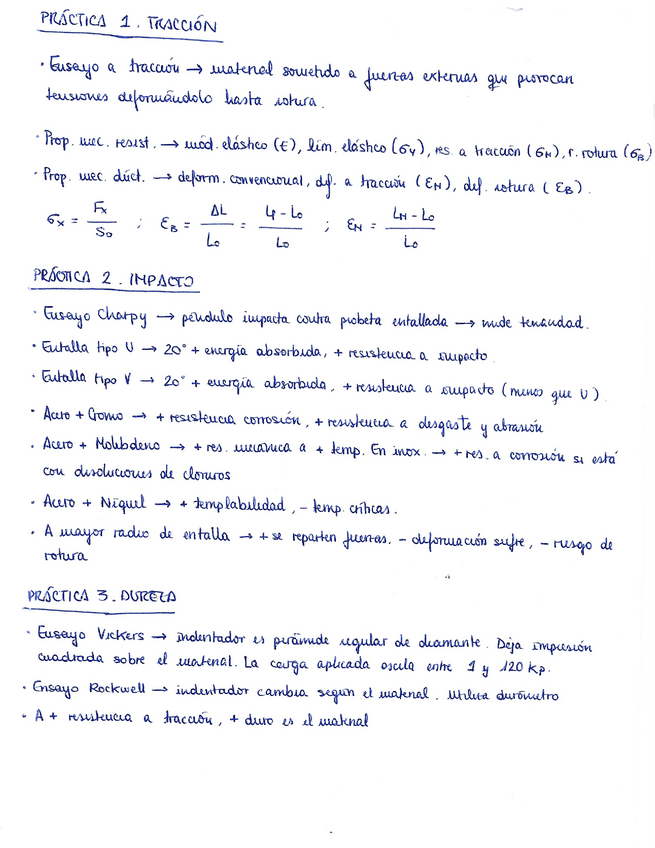 PRÁCTICA 1. TRACCIÓN
· Ensayo a tracción → material sometido a fuerzas externas que provocan
tensiones deformándolo hasta rotura.
· Prop. mec. resist. → mód. elástico (E), lím. elástico (σy), res. a tracción (σM), r. rotura (σB)
· Prop. mec. dúct. → deform. convencional, def. a tracción (εM), def. rotura (εB).
σx = Fx / So ; εB = ΔL / Lo = Lf - Lo / Lo ; εM = LM - Lo / Lo
PRÁCTICA 2. IMPACTO
· Ensayo Charpy → péndulo impacta contra probeta entallada → mide tenacidad.
· Entalla tipo U → 20° + energía absorbida, + resistencia a impacto.
· Entalla tipo V → 20° + energía absorbida, + resistencia a impacto (menos que U).
· Acero + Cromo → + resistencia corrosión, + resistencia a desgaste y abrasión
· Acero + Molibdeno → + res. mecánica a + temp. En inox. → + res. a corrosión si está
con disoluciones de cloruros
· Acero + Níquel → + templabilidad, - temp. críticas.
· A mayor radio de entalla → + se reparten fuerzas, - deformación sufre, - riesgo de
rotura
PRÁCTICA 3. DUREZA
· Ensayo Vickers → indentador es pirámide regular de diamante. Deja impresión
cuadrada sobre el material. La carga aplicada oscila entre 1 y 120 kp.
· Ensayo Rockwell → indentador cambia según el material. Utiliza durómetro
· A + resistencia a tracción, + duro es el material